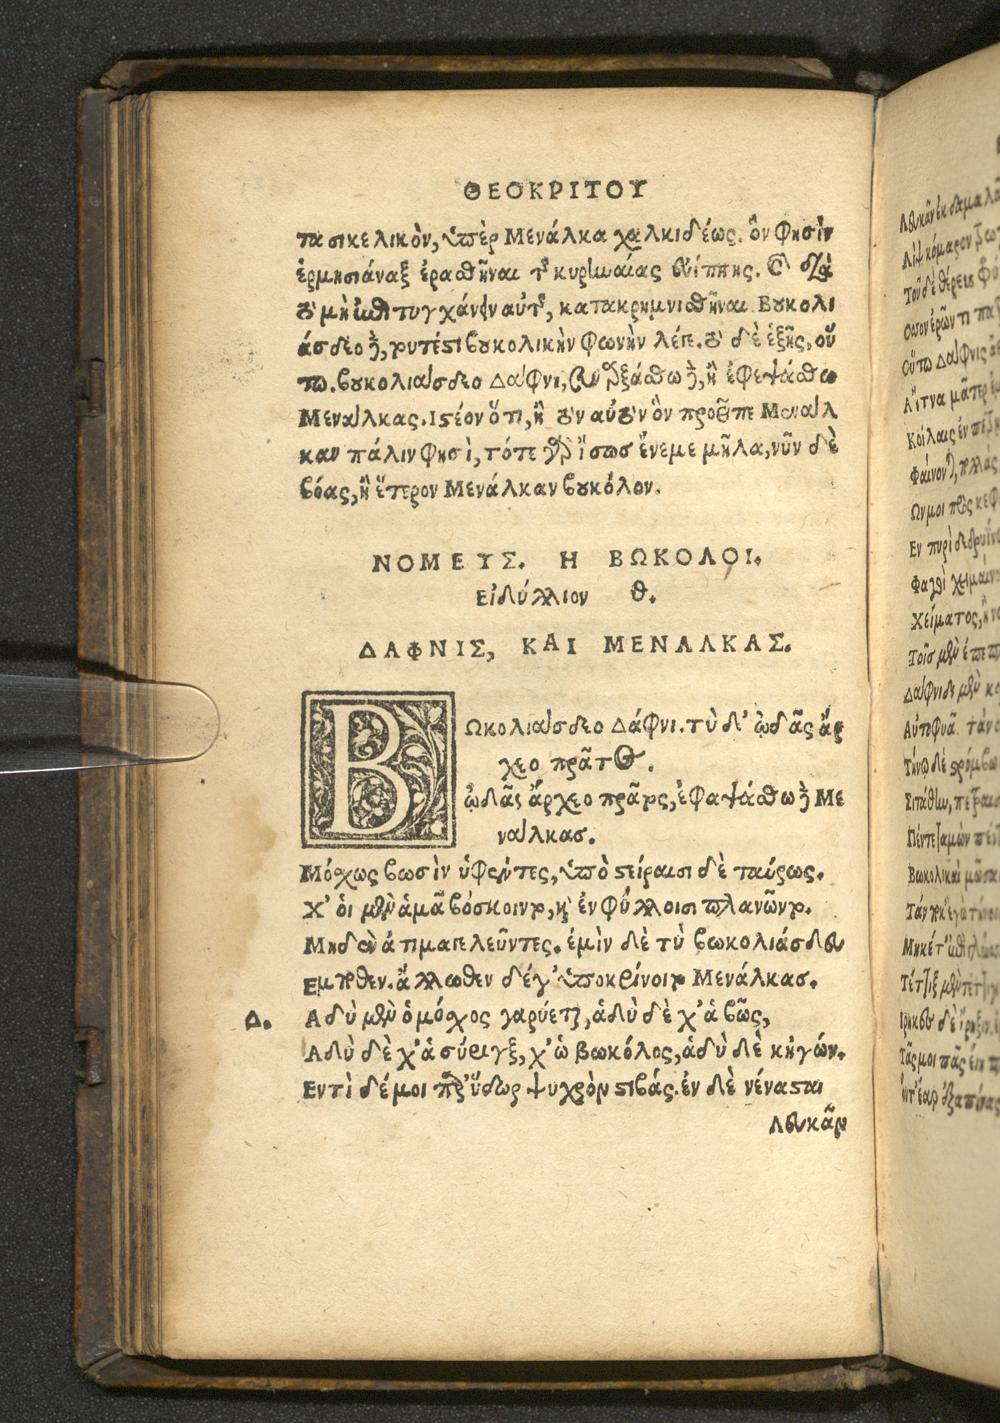 ΘΕΟΚΡΙΤΟΥ
τα σικελικὸν, ὑπὲρ Μενάλκα χαλκιδέως. ὅν φησὶν
ἑρμησιάναξ ἐρασθῆναι τῆς κυρηναίας εὐίππης. καὶ διὰ
τὸ μὴ ἐπιτυγχάνειν αὐτῆς, κατακρημνισθῆναι. Βουκολι
άσδεο δὲ, τουτέστι βουκολικὴν φωνὴν λέγε. τὸ δὲ ἑξῆς, οὕ
τω. βουκολιάσδεο Δάφνι, συναρξάσθω δὲ, ἢ ἐφεψάσθω
Μενάλκας. Ιστέον ὅτι, ἢ τὸν αὐτὸν ὃν προεῖπε Μενάλ
καν πάλιν φησὶ, τότε γὰρ ἴσως ἔνεμε μῆλα, νῦν δὲ
βόας, ἢ ἕτερον Μενάλκαν βουκόλον.
ΝΟΜΕΥΣ. Η ΒΩΚΟΛΟΙ.
Εἰδύλλιον θ.
ΔΑΦΝΙΣ, ΚΑΙ ΜΕΝΑΛΚΑΣ.
ΒΩκολιάσδεο Δάφνι. τὺ δ' ᾠδᾶς ἄρ
χεο πρᾶτος.
ᾠδᾶς ἄρχεο πρᾶτος, ἐφαψάσθω δὲ Με
νάλκας.
Μόσχως βωσὶν ὑφέντες, ὑπὸ στείραισι δὲ ταύρως.
Χ' οἱ μὲν ἁμᾶ βόσκοιντο, καὶ ἐν φύλλοισι πλανῶντο.
Μηδὲν ἀτιμαγελεῦντες. ἐμὶν δὲ τὺ βωκολιάσδευ
Εμποθεν. ἄλλωθεν δέ γ' ὑποκρίνοιτο Μενάλκας.
Δ. Αδὺ μὲν ὁ μόσχος γαρύεται, ἁδὺ δὲ χ' ἁ βῶς,
Αδὺ δὲ χ' ἁ σύριγξ, χ' ὡ βωκόλος, ἁδὺ δὲ κἠγών.
Εντὶ δέ μοι παρ' ὕδωρ ψυχρὸν στιβάς. ἐν δὲ νένασται
Λευκᾶν